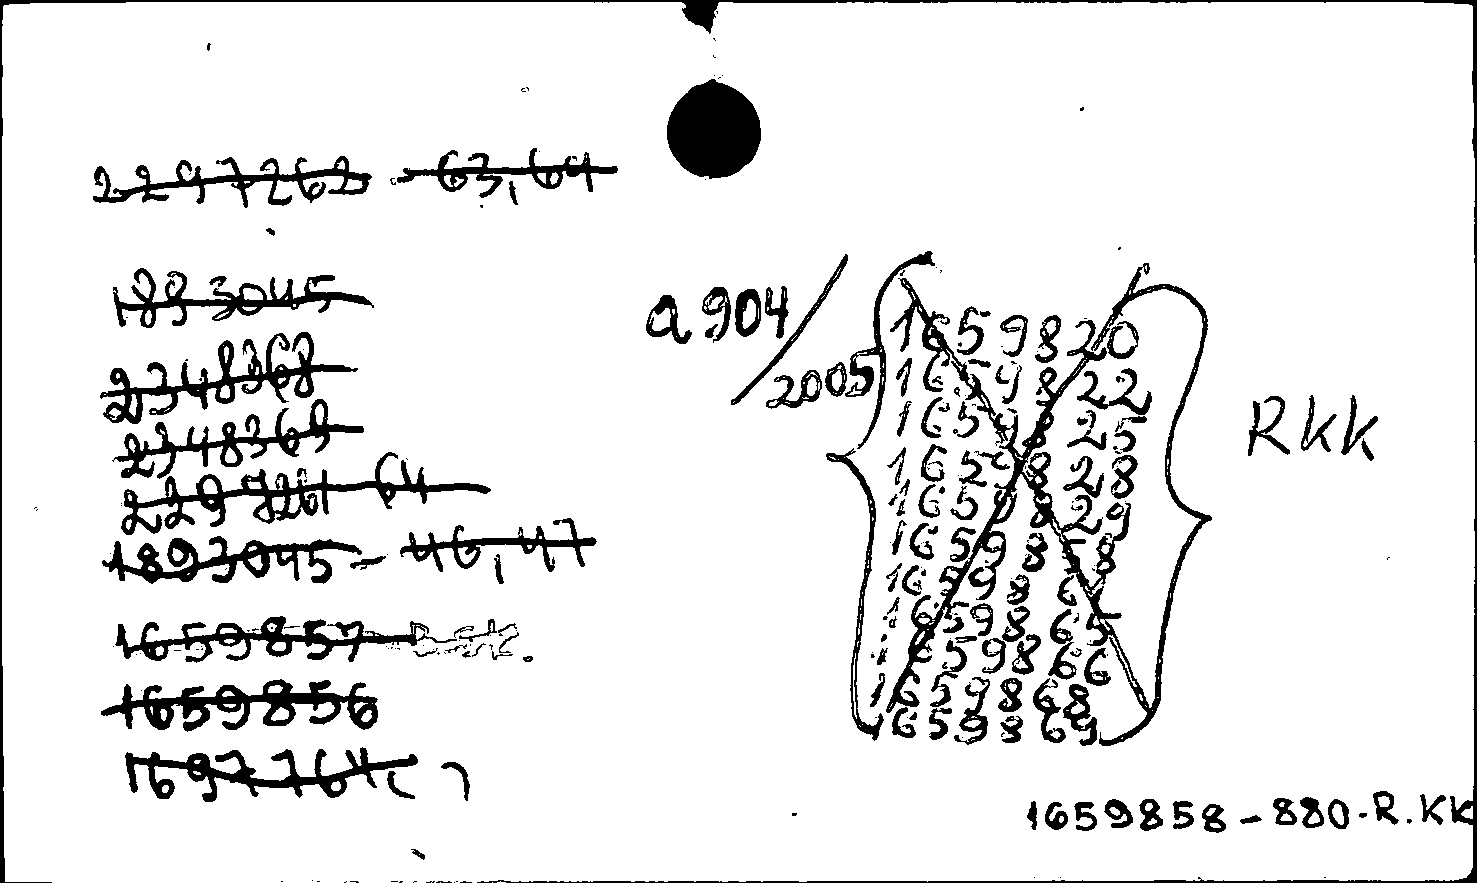 2297262 - 63,64
1893045
2348368
2348369
2297261 64
1893045 - 46,47
1659857
1659856
1697764
a 904/2005
1659820
1659822
1659825
1659828
1659829
1659858
1659865
1659866
1659868
1659869
RKK
1659858-880-R.KK